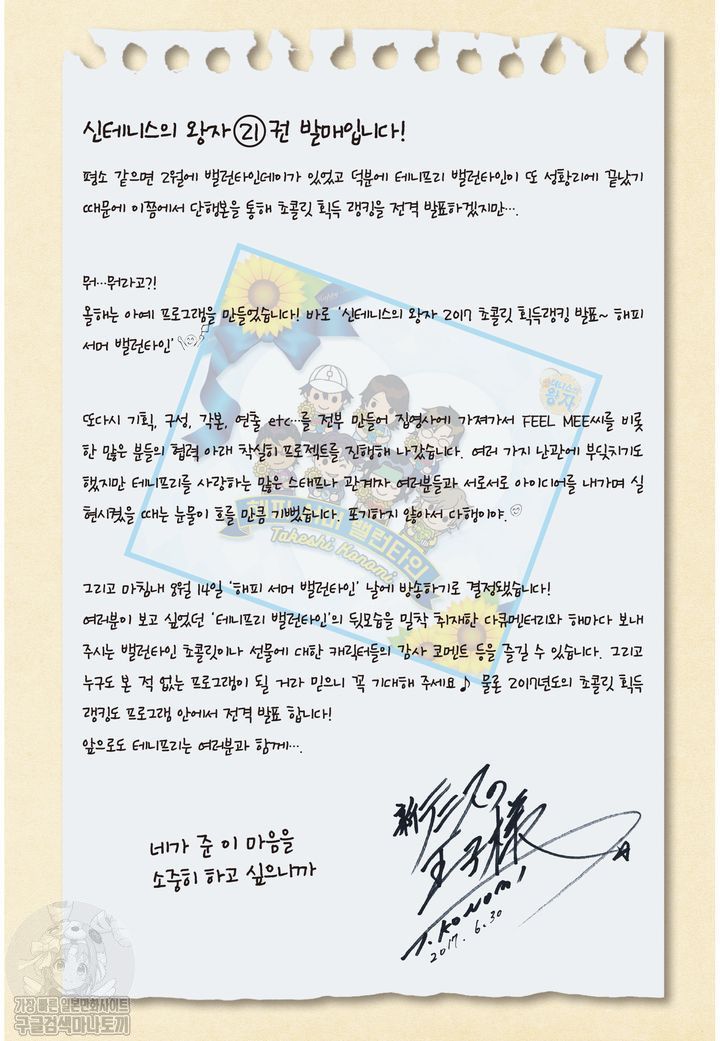 신테니스의 왕자 ㉑권 발매입니다!
평소 같으면 2월에 밸런타인데이가 있었고 덕분에 테니프리 밸런타인이 또 성황리에 끝났기
때문에 이쯤에서 단행본을 통해 초콜릿 획득 랭킹을 전격 발표하겠지만….
뭐…뭐라고?!
올해는 아예 프로그램을 만들었습니다! 바로 '신테니스의 왕자 2017 초콜릿 획득랭킹 발표~ 해피
서머 밸런타인'
또다시 기획, 구성, 각본, 연출 etc…를 전부 만들어 집영사에 가져가서 FEEL MEE씨를 비롯
한 많은 분들의 협력 아래 착실히 프로젝트를 진행해 나갔습니다. 여러 가지 난관에 부딪치기도
했지만 테니프리를 사랑하는 많은 스태프나 관계자 여러분들과 서로서로 아이디어를 내가며 실
현시켰을 때는 눈물이 흐를 만큼 기뻤습니다. 포기하지 않아서 다행이야.
그리고 마침내 8월 14일 '해피 서머 밸런타인' 날에 방송하기로 결정됐습니다!
여러분이 보고 싶었던 '테니프리 밸런타인'의 뒷모습을 밀착 취재한 다큐멘터리와 해마다 보내
주시는 밸런타인 초콜릿이나 선물에 대한 캐릭터들의 감사 코멘트 등을 즐길 수 있습니다. 그리고
누구도 본 적 없는 프로그램이 될 거라 믿으니 꼭 기대해 주세요♪ 물론 2017년도의 초콜릿 획득
랭킹도 프로그램 안에서 전격 발표 합니다!
앞으로도 테니프리는 여러분과 함께….
네가 준 이 마음을
소중히 하고 싶으니까
新テニスの
王子様
T.KONOMI
2017. 6.30
테니스의
왕자
해피 서머 밸런타인
Takeshi Konomi
가장 빠른 일본만화사이트
구글검색마나토끼